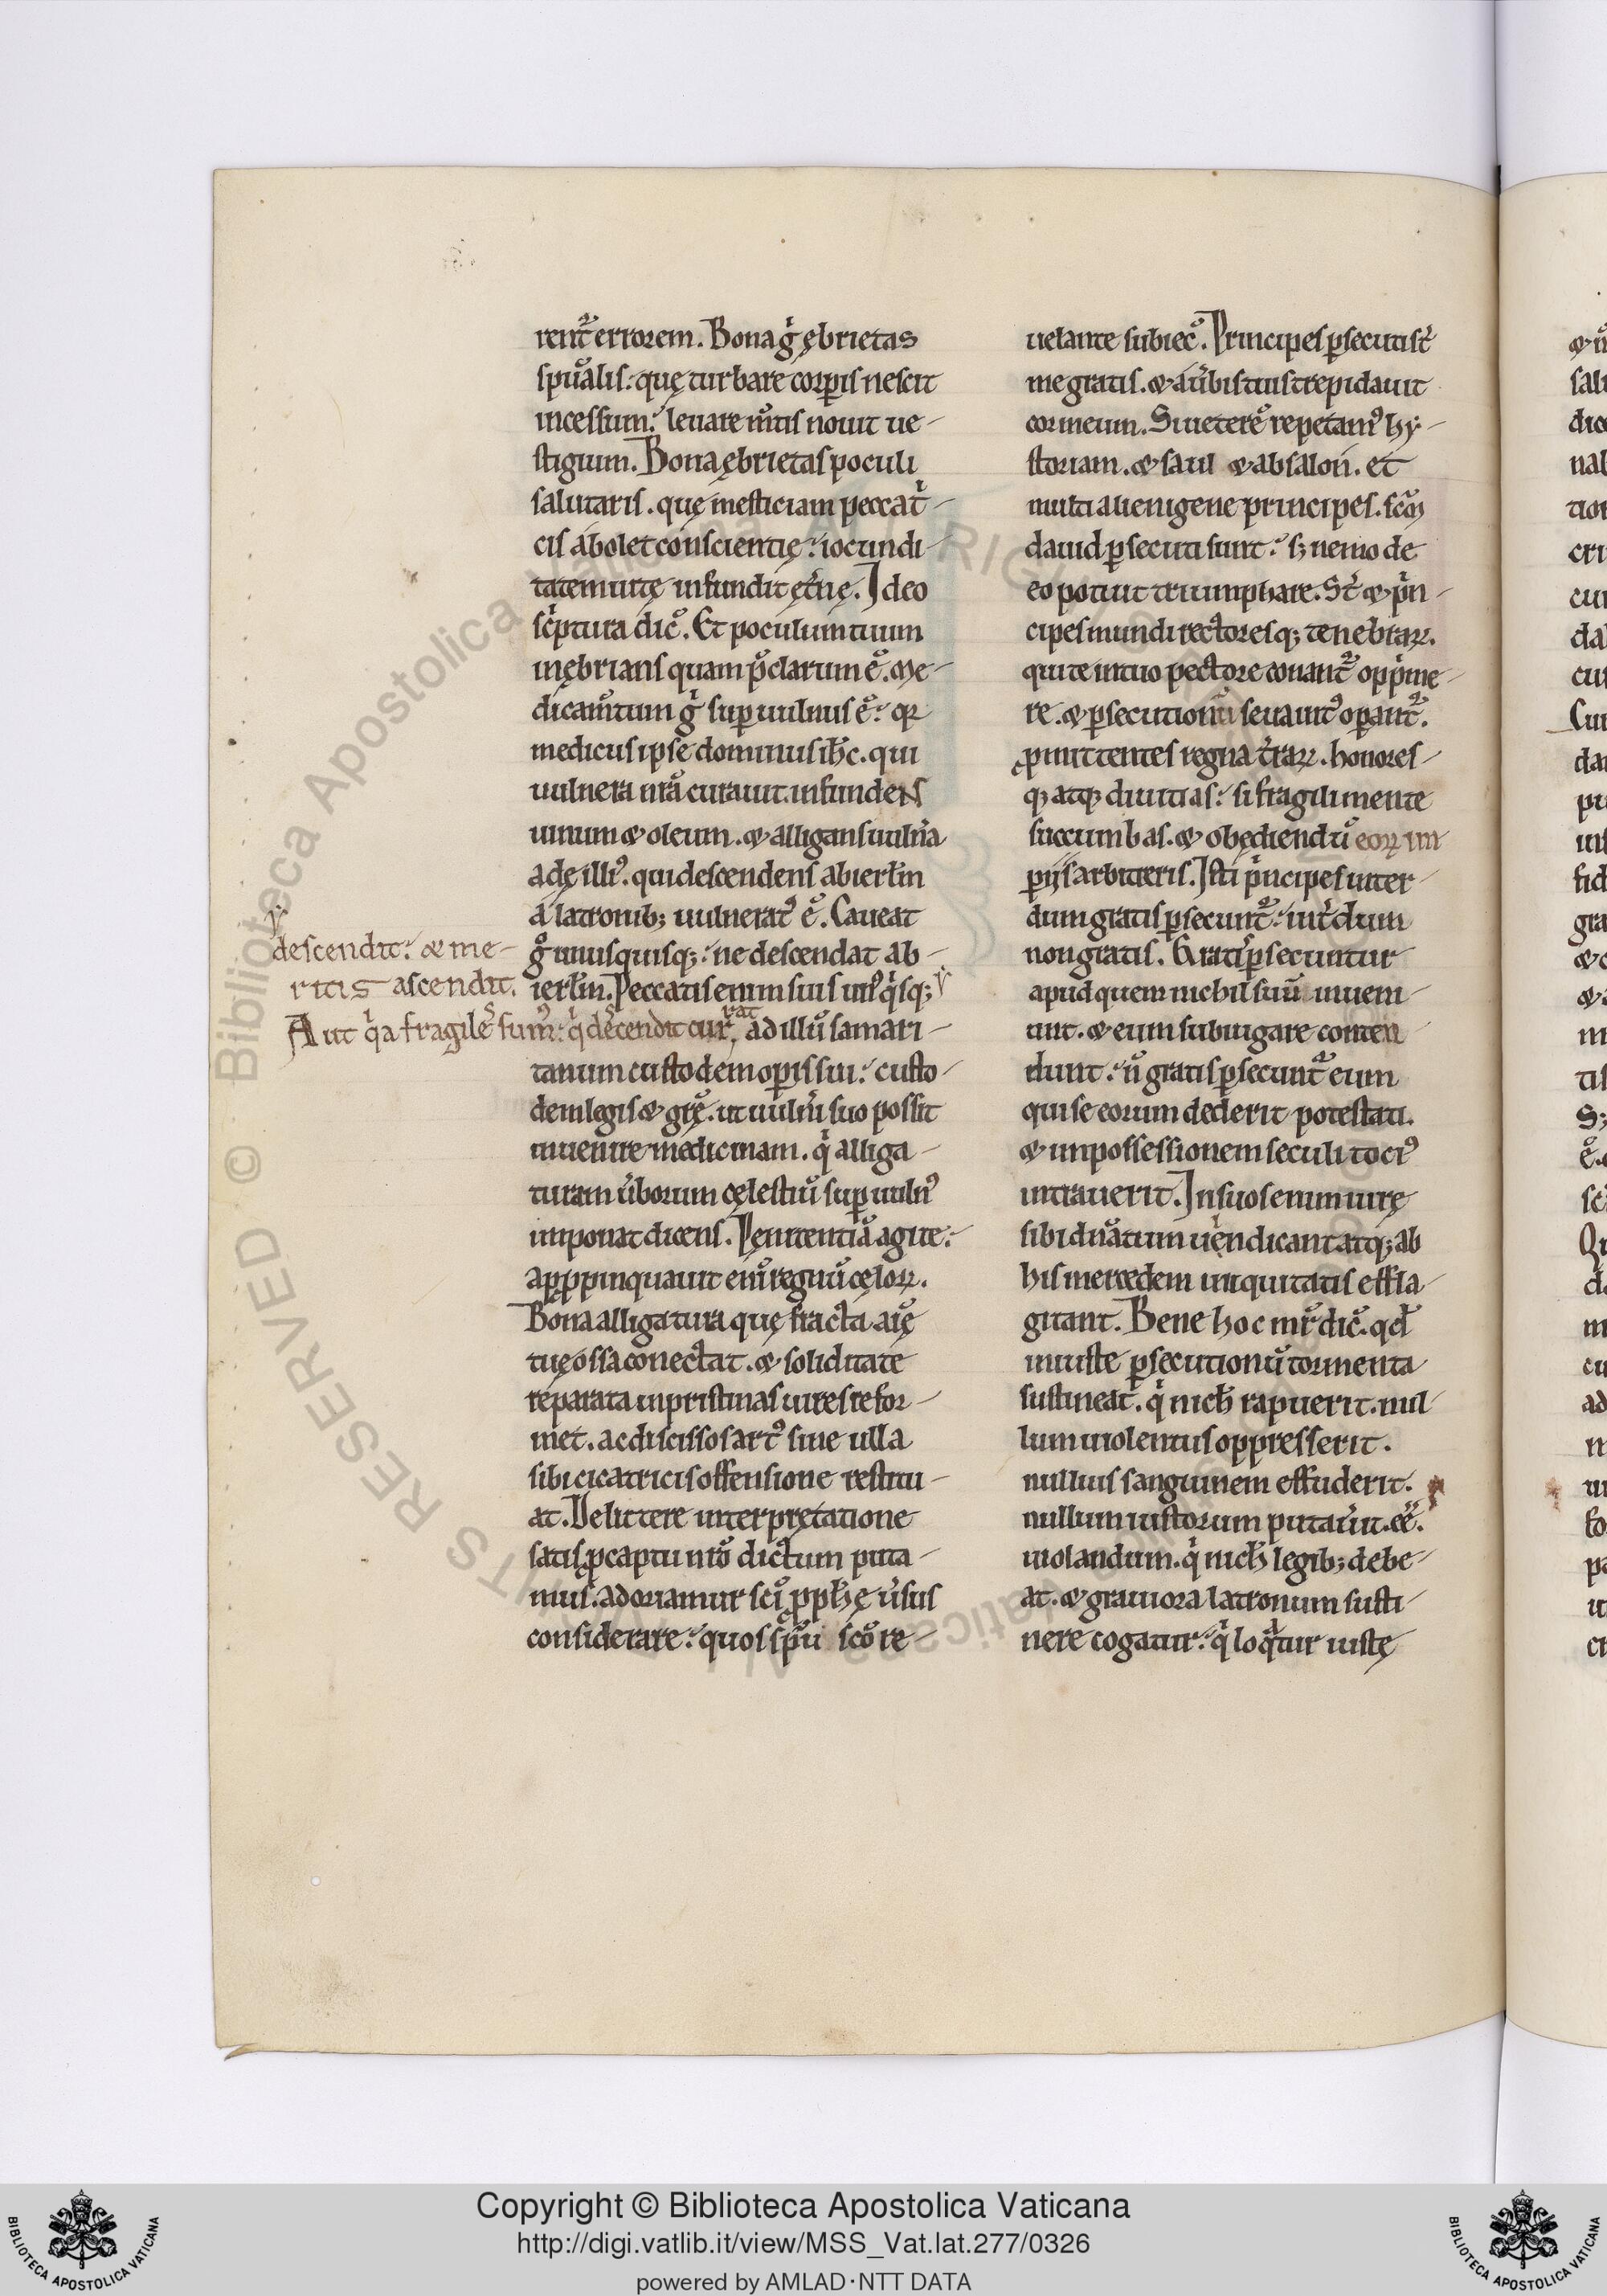 rent᷑ errorem. Bona gͥ ębrietas
spũalis: quę turbare corꝑis nescit
incessum: leuare m̃tis nouit ue-
stigium. Bona ębrietas poculi
salutaris. quę mesticiam peccatͥ-
cis abolet conscientię: iocundi-
tatem uitę infundit ęt̃nę. Ideo
sc̃ptura dic̃. Et poculum tuum
inębrians quam p̃clarum ẽ. Me-
dicam̃tum gͥ suꝑ uulnus ẽ: qꝛ
medicus ipse dominus ih̅c. qui
uulnera nr̃a curauit. infundens
uinum & oleum. & alligans uuln̾a
adę illiꝰ. qui descendens ab ierl̃m
a latronib; uulneratꝰ ẽ. Caueat
gͦ unusquisq;: ne descendat ab-
ierl̃m. Peccatis enim suis un̾ꝰqͥsq;
descendit: & me-
ritis ascendit.
Aut qͥa fragiles̃ sumꝰ: qͥ descendit currat, ad illũ samari-
tanum custodem oꝑis sui: custo-
dem legis & gr̃ę. ut uuln̾i suo possit
inuenire medicinam. qͥ alliga-
turam u̾borum cęlestiũ suꝑ uulnꝰ
imponat dicens. Pęnitentiã agite:
aꝓpinquauit enĩ regnũ cęloꝝ.
Bona alligatura quę fracta aĩę
tuę ossa conectat. & soliditate
reparata in pristinas uires refor-
met. ac discissos artꝰ sine ulla
sibi cicatricis offensione restitu-
at. De littere interprętatione
satis ꝓ captu nr̃o dictum puta-
mus. adoriamur sc̃i ꝓph̃ę u̾sus
considerare: quos sp̃u sc̃o re-
uelante subiec̃. Principes ꝑsecuti st̃
me gratis. & a u̾bis tuis trepidauit
cor meum. Si ueterẽ repetamꝰ hy-
storiam. & saul & absalon. et
multi alienigene principes. sc̃m
dauid ꝑsecuti sunt: s; nemo de
eo potuit triumphare. St̃ & pͥn-
cipes mundi rectoresq; tenebraꝝ.
qui te in tuo pectore conant᷑ oppͥme-
re. & ꝑsecutionũ seua intꝰ oꝑant᷑.
ꝓmittentes regna t̾raꝝ. honores-
q; atq; diuitias: si fragili mente
succumbas. & obędiendũ eoꝝ im
ꝑijs arbitreris. Isti pͥncipes inter-
dum gratis ꝑsecunt᷑: int̾dum
non gratis. Gratis ꝑsecuntur
apud quem nichil suũ inueni-
unt. & eum subiugare conten
dunt: ñ gratis ꝑsecunt᷑ eum
qui se eorum dederit potestati.
& in possessionem seculi tociꝰ
intrauerit. In suos enim iurę
sibi dñatum uęndicant atq; ab
his mercedem iniquitatis effla-
gitant. Bene hoc mr̃ dic̃. qd̃
iniuste ꝑsecutionũ tormenta
sustineat. qͥ nich̃ rapuerit. nul-
lum uiolentus oppresserit.
nullius sanguinem effuderit.
nullum iustorum putau̾it. eẽ.
uiolandum. qͥ nich̃ legib; debe-
at. & grauiora latronum susti-
nere cogatur: qͥ loqͣtur iustę
Copyright © Biblioteca Apostolica Vaticana
http://digi.vatlib.it/view/MSS_Vat.lat.277/0326
powered by AMLAD·NTT DATA